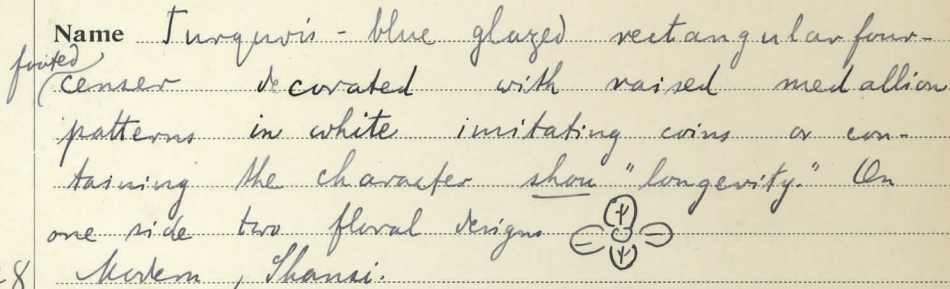 Name Turquois-blue glazed rectangular four-
footed censer decorated with raised medallion
patterns in white imitating coins or con-
taining the character shou "longevity." On
one side two floral designs
8 Modern, Shansi.